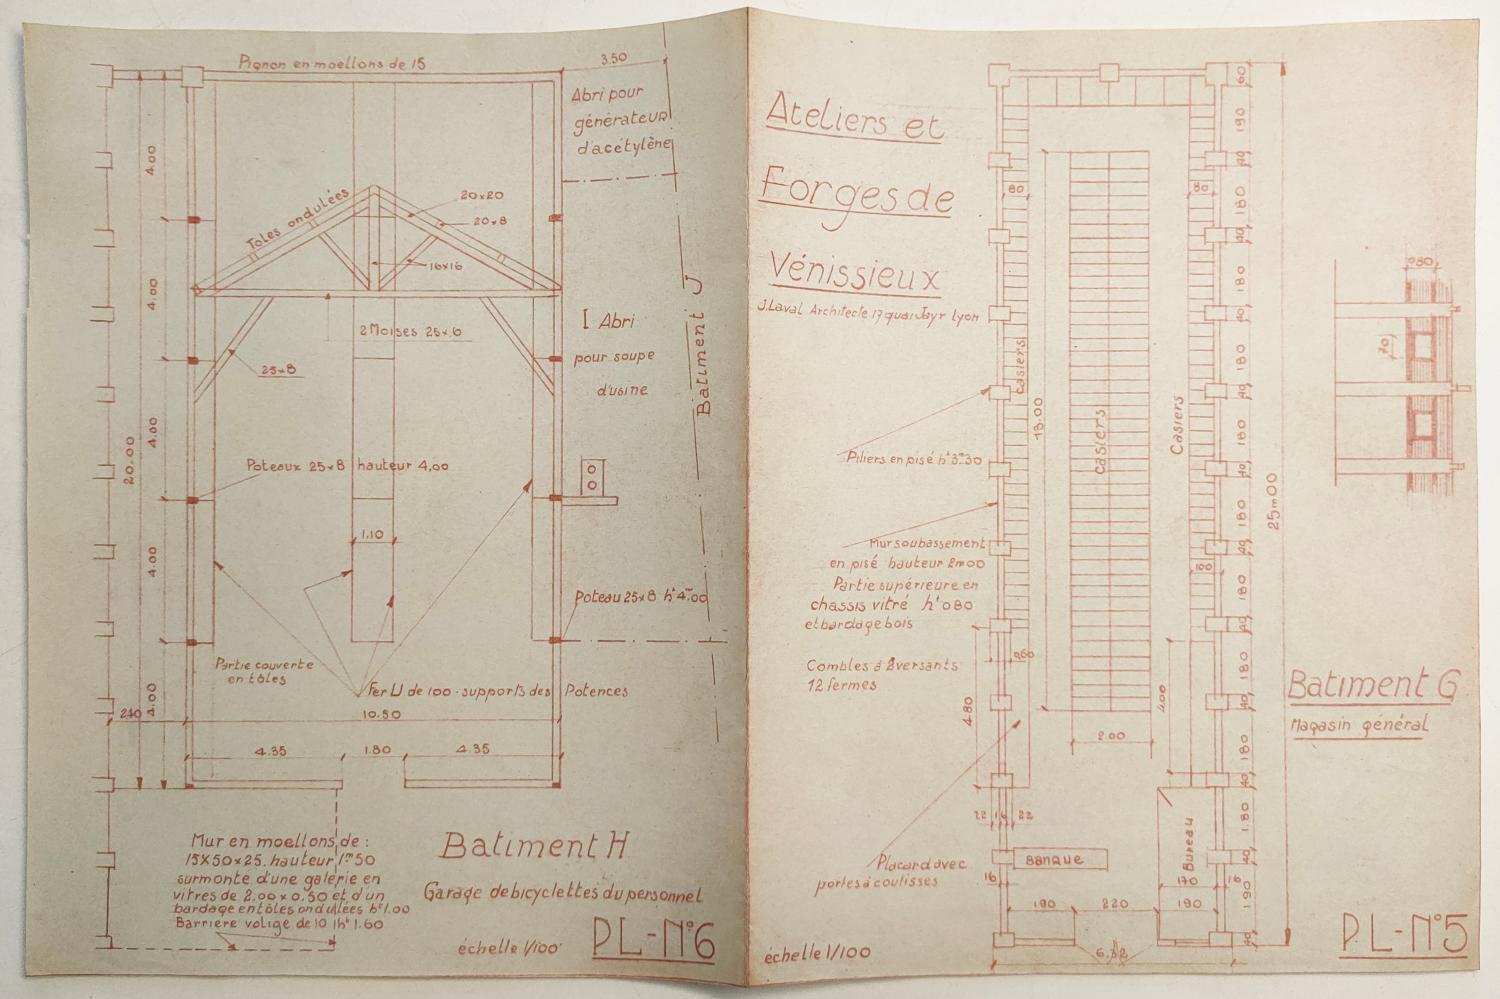 Pignon en moellons de 15
3.50
Abri pour
générateur
d'acétylène
4.00
Toles ondulées
20x20
20x8
16x16
4.00
2 Moises 25x6
25x8
[ Abri
pour soupe
d'usine
Batiment J
4.00
20.00
Poteaux 25x8 hauteur 4,00
1.10
4.00
Poteau 25x8 ht 4m00
Partie couverte
en tôles
Fer U de 100 - supports des Potences
4.00
240
10.50
4.35
1.80
4.35
Mur en moellons de :
15X50x25. hauteur 1m50
surmonté d'une galerie en
vitres de 2.00 x 0.50 et d'un
bardage en tôles ondulées ht 1.00
Barrière volige de 10 ht 1.60
Batiment H
Garage de bicyclettes du personnel
échelle 1/100
PL-N°6
Ateliers et
Forges de
Vénissieux
J. Laval Architecte 17 quai Jayr Lyon
80
80
Casiers
13.00
Casiers
Casiers
Piliers en pisé ht 3m30
Mur soubassement
en pisé hauteur 2m00
Partie supérieure en
chassis vitré ht 080
et bardage bois
Combles à 2 versants
12 fermes
100
060
4.80
4.00
2.00
22
16
22
Placard avec
portes à coulisses
Banque
16
Bureau
170
16
190
220
190
60
190
40
180
40
180
40
180
40
180
40
180
40
180
40
180
40
180
40
180
40
1.80
40
190
40
25m00
080
70
Batiment G
Magasin général
échelle 1/100
PL-N°5